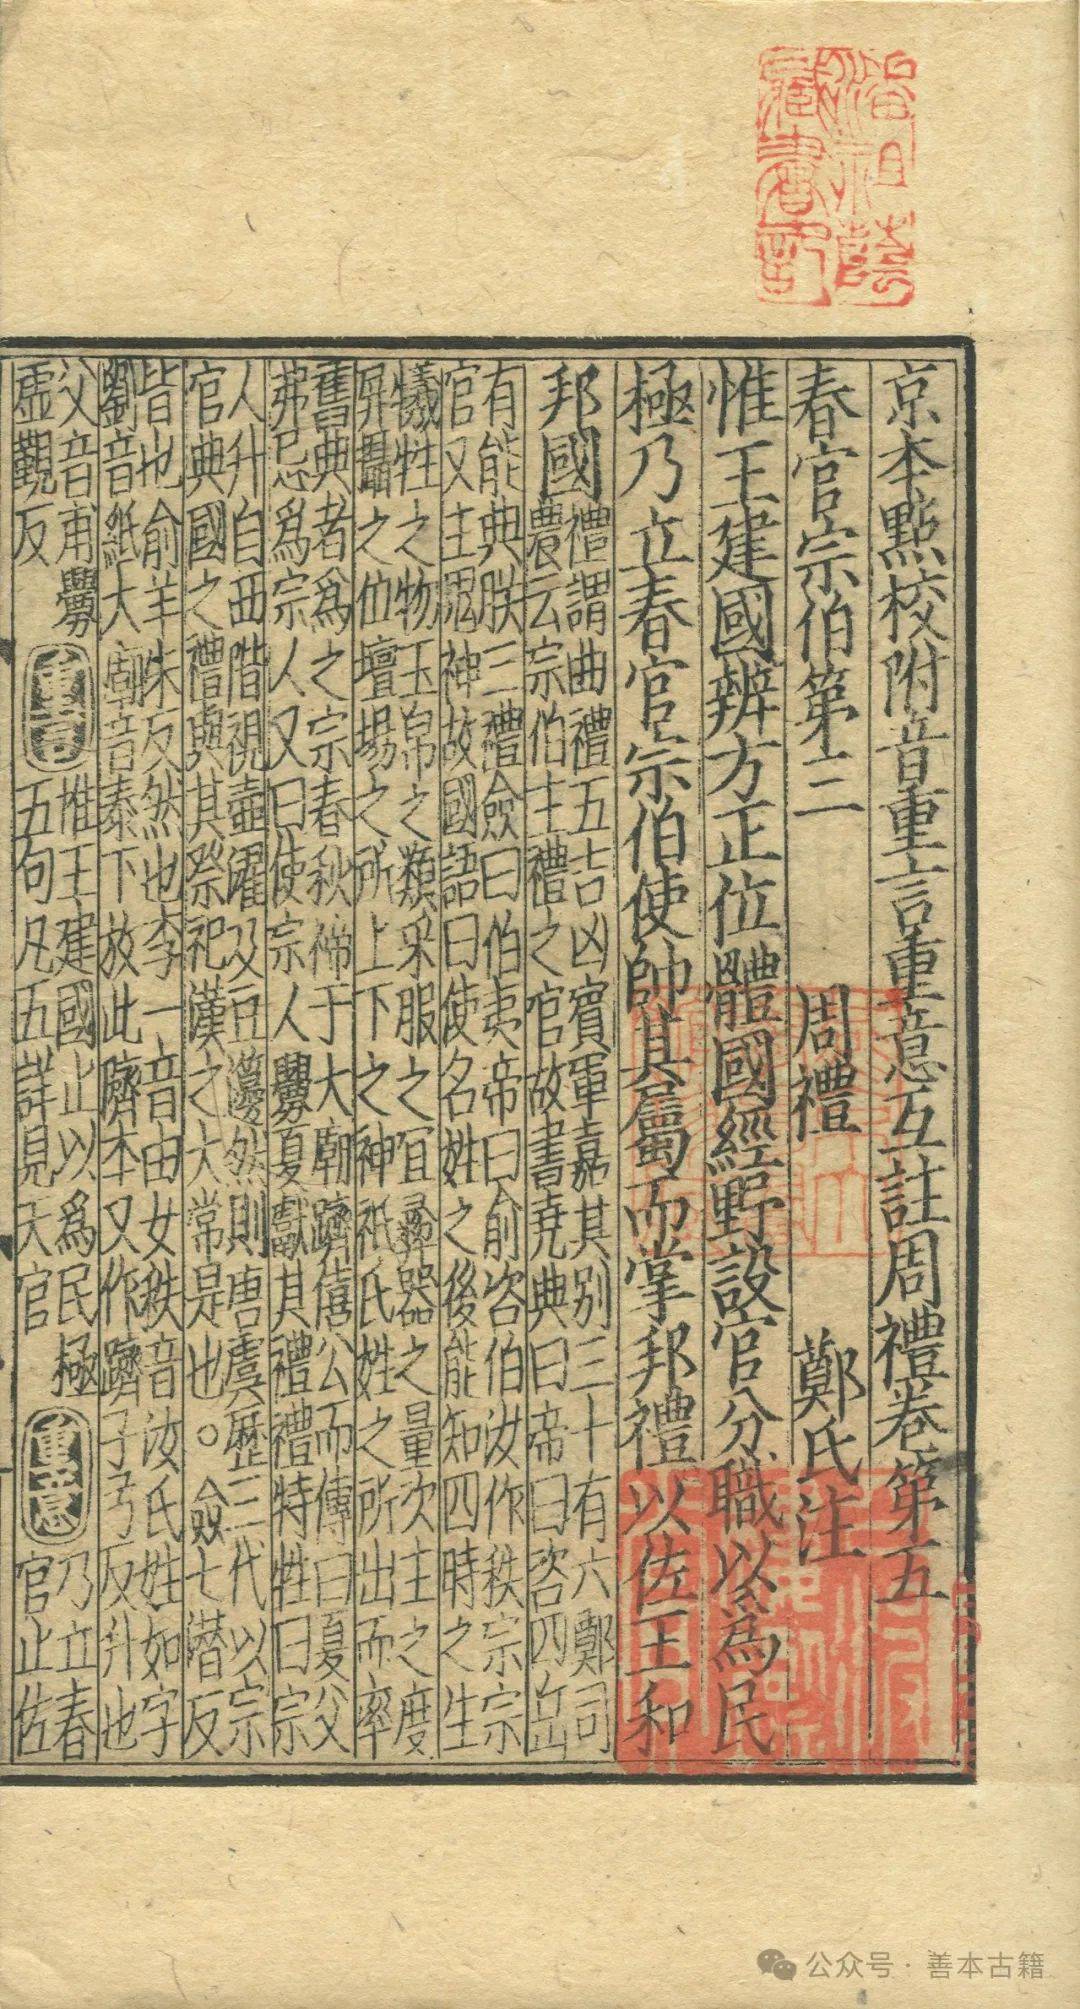 潘祖蔭
藏書記
京本點校附音重言重意互註周禮卷第五
春官宗伯第三 周禮 鄭氏注
惟王建國辨方正位體國經野設官分職以為民
極乃立春官宗伯使帥其屬而掌邦禮以佐王和
邦國禮謂曲禮五吉凶賓軍嘉其别三十有六鄭司
農云宗伯主禮之官故書堯典曰帝曰咨四岳
有能典朕三禮僉曰伯夷帝曰俞咨伯汝作秩宗宗
官又主鬼神故國語曰使名姓之後能知四時之生
犧牲之物玉帛之類采服之冝彝器之量次主之度
屏攝之位壇場之所上下之神祇氏姓之所出而率
舊典者爲之宗春秋禘于大廟躋僖公而傳曰夏父
弗忌爲宗人又曰使宗人釁夏獻其禮禮特牲曰宗
人升自西階視壺濯及豆籩然則唐虞歷三代以宗
官典國之禮與其祭祀漢之大常是也。僉七潜反
皆也俞羊朱反然也李一音由女秩音汝氏姓如字
劉音紙大廟音泰下放此隮本又作躋子兮反升也
父音甫釁
虚觀反
重言
惟王建國止以爲民極
五句凡五詳見天官
重意
乃立春
官止佐
公众号·善本古籍